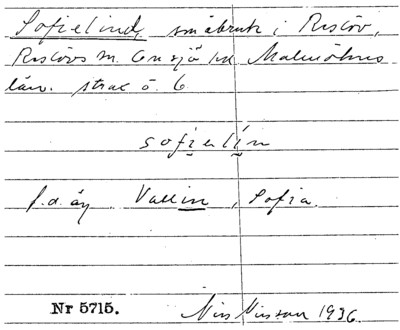 Sofielind, småbruk i Riseröv,
m. Onsjö hd Malmöhus
län. strax ö. 6
sofielín
f.d. äg Vallin, Sofia.
Nr 5715. Nils Nilsson 1936.